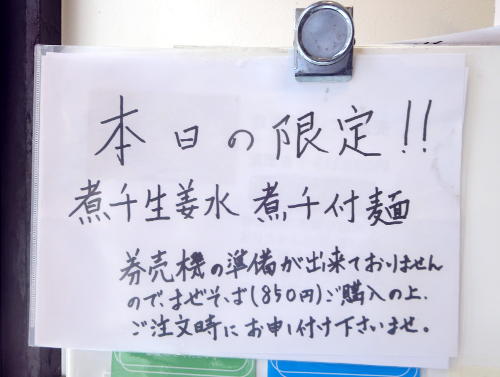 本日の限定!!
煮干生姜水 煮干付麺
券売機の準備が出来ておりません
ので、まぜそば(850円)ご購入の上、
ご注文時にお申し付け下さいませ。